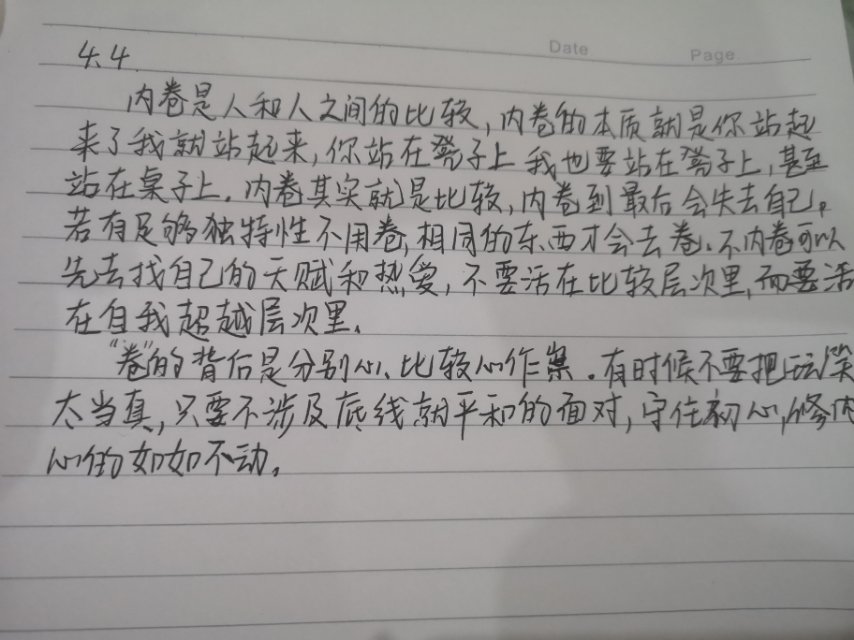 Date
Page
4.4
内卷是人和人之间的比较,内卷的本质就是你站起
来了我就站起来,你站在凳子上我也要站在凳子上,甚至
站在桌子上.内卷其实就是比较,内卷到最后会失去自己。
若有足够独特性不用卷,相同的东西才会去卷.不内卷可以
先去找自己的天赋和热爱,不要活在比较层次里,而要活
在自我超越层次里.
“卷”的背后是分别心、比较心作案.有时候不要把玩笑
太当真,只要不涉及底线就平和的面对,守住初心,修内
心的如如不动。